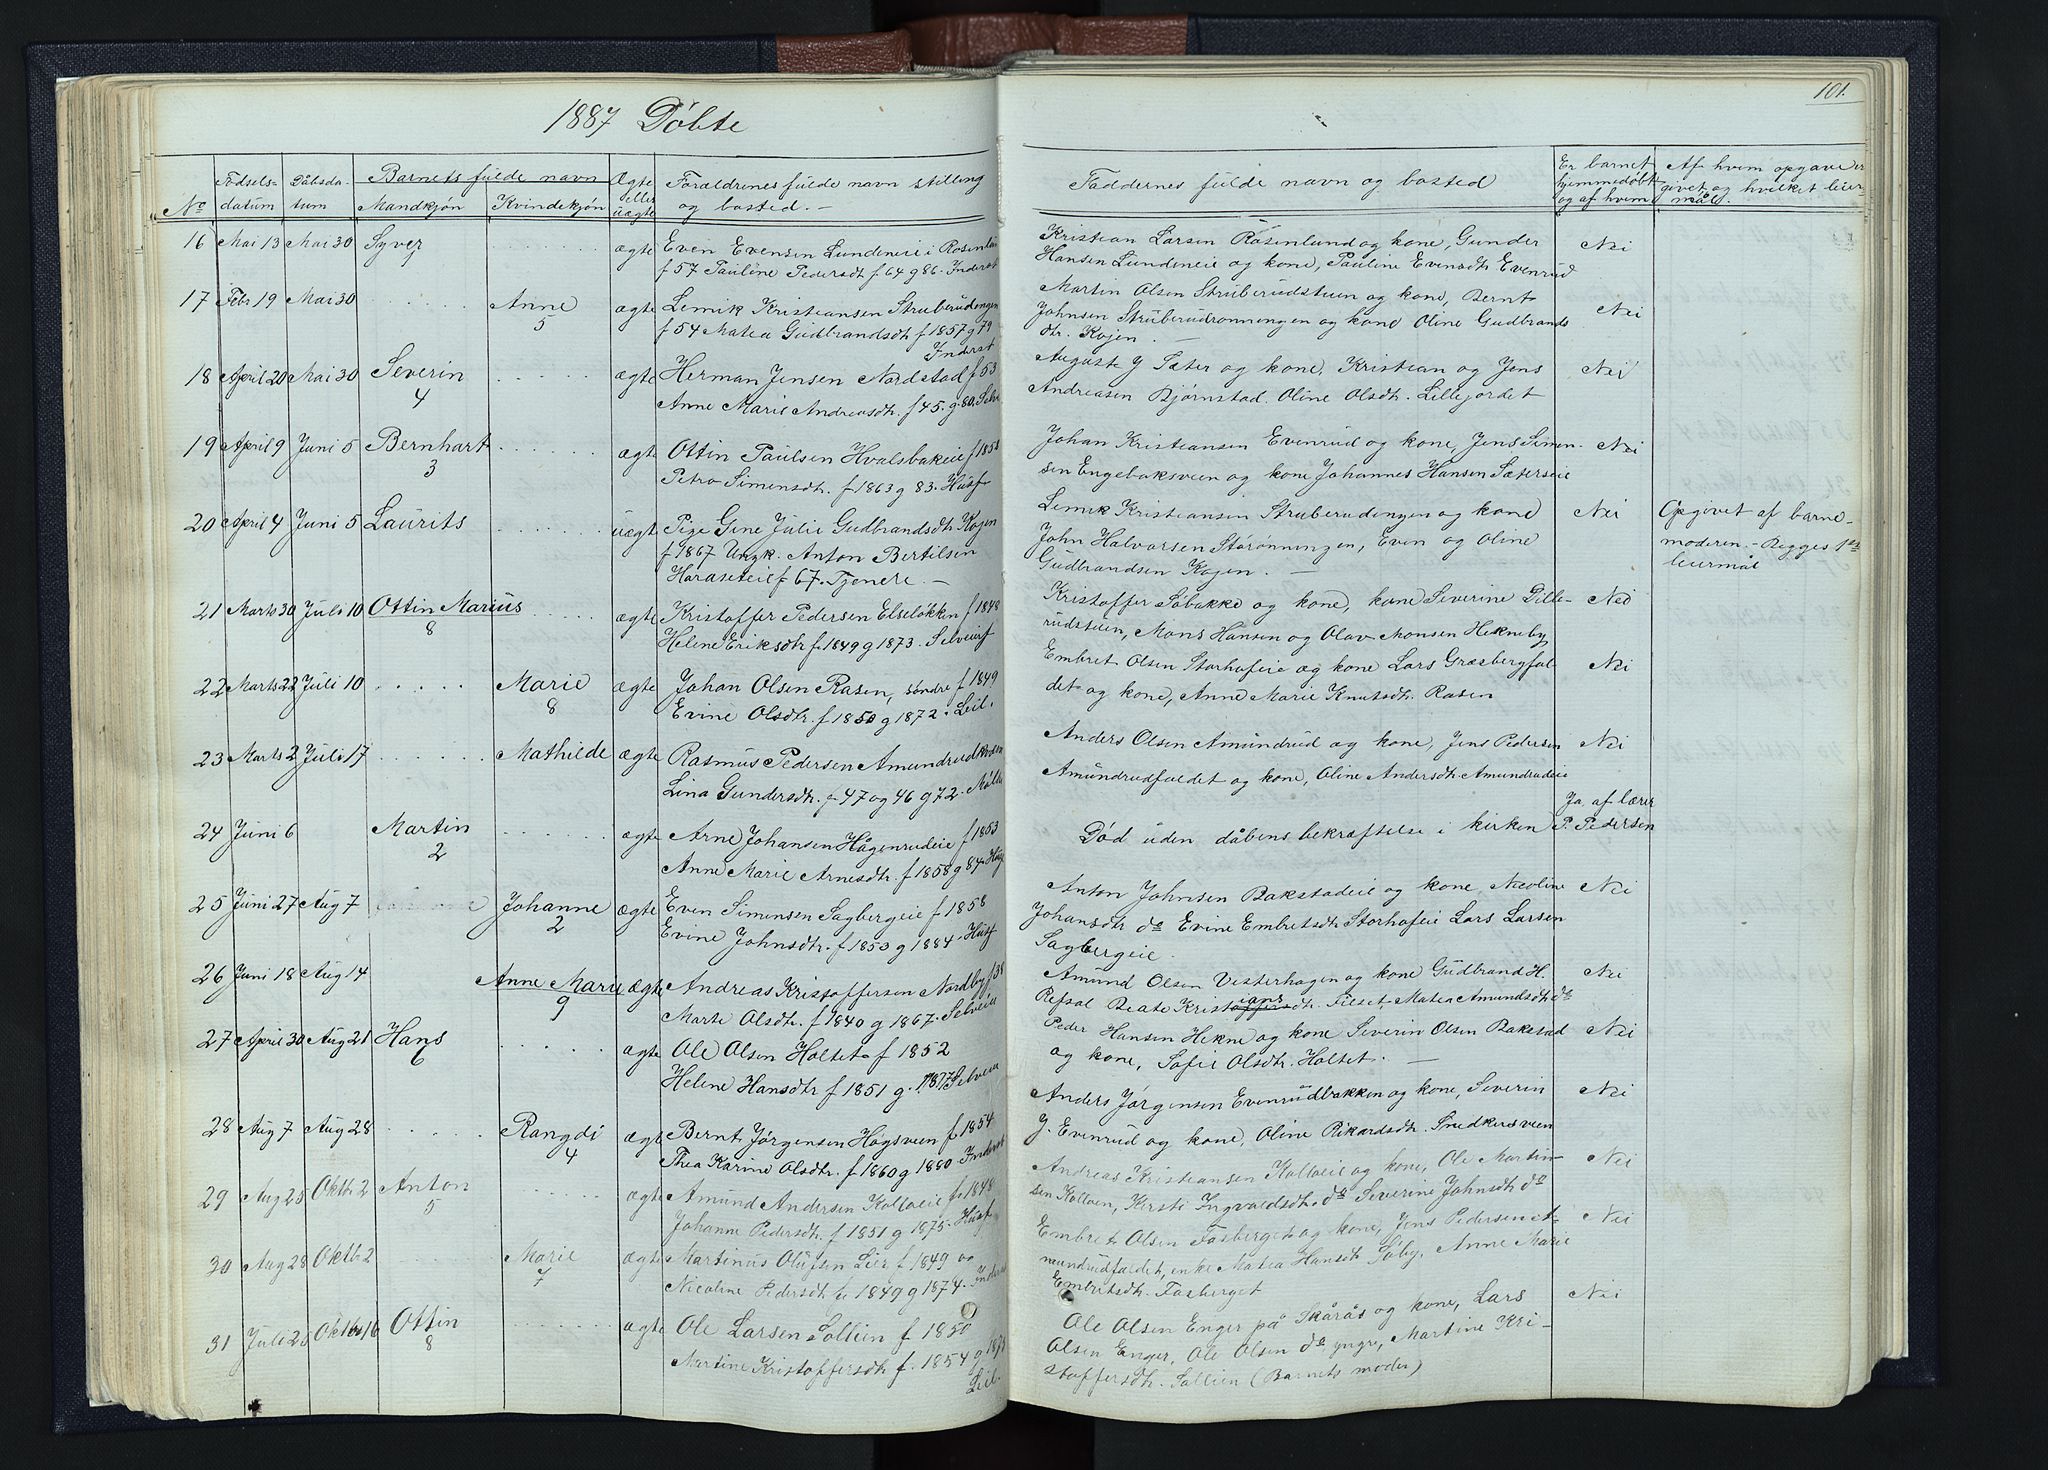 1887 Döbte
101.
No
Födsels-
datum
Dåbsda-
tum
Barnets fulde navn
Mandkjön
Kvindekjön
Ægte
eller
uægte
Forældrenes fulde navn stilling
og bosted. –
Faddernes fulde navn og bosted
Er barnet
hjemmedöbt
og af hvem
Af hvem opgave er
givet og hvilket leier-
mål.
16 Mai 13 Mai 30 Syver ægte Even Evensen Lundeneie i Rosenlun
f 57 Pauline Pedersdt f 64 g 86. Inderst
Kristian Larsen Rosenlund og kone, Gunder Nei
Hansen Lundeneie og kone, Pauline Evensdt Evenrud
17 Febr 19 Mai 30 Anne ægte Lemik Kristiansen Struberudengen
5
f 54 Matea Gudbrandsdt f 1857 g 79
Inderst
Martin Olsen Struberudstuen og kone, Bernt
Johnsen Struberudrönningen og kone Oline Gudbrands Nei
dtr. Kojen. –
18 April 20 Mai 30 Severin ægte Herman Jensen Nordstad f 53
4
Anne Marie Andreasdt. f 45. g. 80. Selv
August J Sæter og kone, Kristian og Jens Nei
Andreasen Björnstad. Oline Olsdt. Lillejordet
19 April 9 Juni 5 Bernhart ægte Ottin Paulsen Hvalsbakeie f 1858
3
Petra Simensdt. f 1863 g 83. Husf
Johan Kristiansen Evenrud og kone, Jens Simen- Nei
sen Engebaksveen og kone Johannes Hansen Sæterseie
20 April 4 Juni 5 Laurits uægte Pige Gine Julie Gudbrandsdt Kojen
f 1867 Ungk. Anton Bertilsen
Haraseteie f 67. Tjenere. –
Lemik Kristiansen Struberudengen og kone Nei
John Halvorsen Störönningen, Even og Oline
Gudbrandsen Kojen. –
Opgivet af barne-
moderen. – Begges 1ste
leiermål
21 Marts 30 Juli 10 Ottin Marius ægte Kristoffer Pedersen Elselökken f 1848
8
Helene Eriksdt f 1849 g 1873. Selveierf
Kristoffer Söbakke og kone, kone Severine Dille- Nei
rudstuen, Mons Hansen og Olav Monsen Hekneby
22 Marts 22 Juli 10 Marie ægte Johan Olsen Rasen, söndre f 1849
8
Evine Olsdtr. f 1850 g 1872. Leil.
Embret Olsen Storhofeie og kone Lars Græsbergfal Nei
det og kone, Anne Marie Knutsdt. Rasen
23 Marts 2 Juli 17 Mathilde ægte Rasmus Pedersen Amundrudkroken
Lina Gundersdtr. f 47 og 46 g 72.
Anders Olsen Amundrud og kone, Jens Pedersen Nei
Amundrudfaldet og kone, Oline Andersdt. Amundrudeie
24 Juni 6 Martin ægte Arne Johansen Hågenrudeie f 1853
2
Anne Marie Arnesdtr. f 1858 g 84.
Död uden dåbens bekræftelse i kirken
Ja. af lærer
P. Pedersen
25 Juni 27 Aug 7 Johanne ægte Even Simensen Sagbergeie f 1858
2
Evine Johnsdtr. f 1853 g 1884. Husf
Anton Johnsen Bakstadeie og kone, Nicoline Nei
Johansdt do Evine Embretsdt Storhofeie Lars Larsen
Sagbergeie.
26 Juni 18 Aug 14 Anne Marie ægte Andreas Kristoffersen Nordby f 38
9
Marte Olsdt. f 1840 g 1867. Selveier
Amund Olsen Vesterhagen og kone Gudbrand H. Nei
Refsal Beate Kristoffersdt. Tilset, Matea Amundsdt do
ians
27 April 30 Aug 21 Hans ægte Ole Olsen Holtet f 1852
6
Helene Hansdtr f 1851 g. 1877 Selveier
Peder Hansen Hekne og kone Severin Olsen Bakstad Nei
og kone, Sofie Olsdtr. Holtet. –
28 Aug 7 Aug 28 Rangdi ægte Bernt Jörgensen Hagsveen f 1854
4
Thea Karine Olsdtr. f 1860 g 1880 Inderst
Anders Jörgensen Evenrudbakken og kone, Severin Nei
J. Evenrud og kone, Oline Rikardsdt. Snedkersveen
29 Aug 25 Oktb 2 Anton ægte Amund Andersen Kolloeie f 1848
5
Johanne Pedersdt. f 1851 g 1875. Husf
Andreas Kristiansen Kolloeie og kone, Ole Martin- Nei
sen Kolloen, Kirsti Ingvaldsdt. do Severine Johnsdt do
30 Aug 28 Oktb 2 Marie ægte Martinus Olufsen Lier f 1849 og
7
Nicoline Pedersdt f 1849 g 1874. Inderst
Embret Olsen Fosberget og kone, Jens Pedersen A- Nei
mundrudfaldet, enke Matea Hansdt Söby, Anne Marie
Embretsdt. Fosberget
31 Juli 25 Oktbr 16 Ottin ægte Ole Larsen Sollien f 1850
8
Martine Kristoffersdt f. 1854 g 1875
Leil.
Ole Olsen Enger på Skårås og kone, Lars Nei
Olsen Enger, Ole Olsen do yngre, Martine Kri-
stoffersdt. Sollien (Barnets moder)